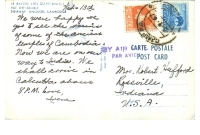 Feb. 13th
We were happy we
got to see the ruins
of some of the ancient
temples of Cambodia.
Now we are on our
way to India. We
shall arrive in
Calcutta about
8 P.M. Love
Irene
BY AIR
PAR AVION
CARTE POSTALE
POST CARD
Mrs. Robert
Rossville
Indiana
U.S.A.